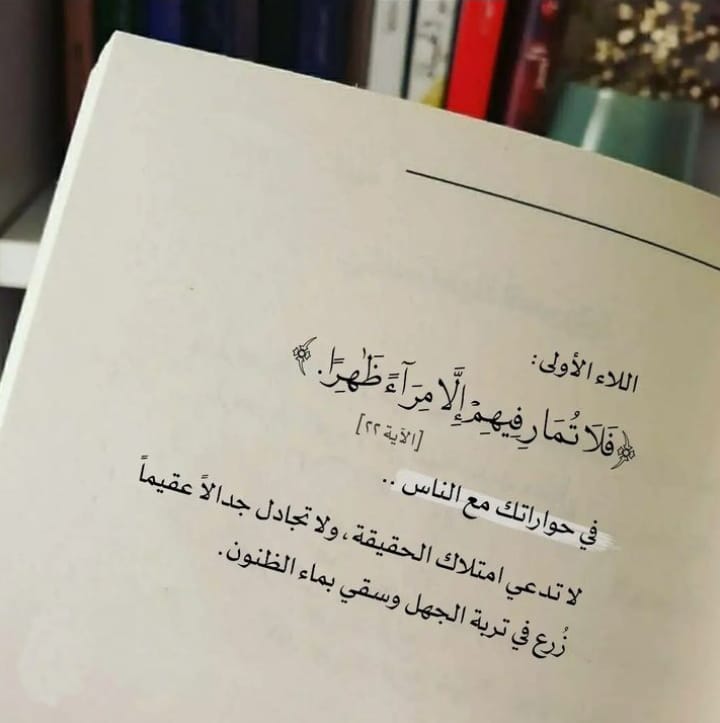 اللاء الأولى:
﴿فَلَا تُمَارِ فِيهِمْ إِلَّا مِرَآءً ظَٰهِرًا.﴾
[الآية ٢٢]
في حواراتك مع الناس ..
لا تدعي امتلاك الحقيقة، ولا تجادل جدالاً عقيماً
زُرع في تربة الجهل وسقي بماء الظنون.